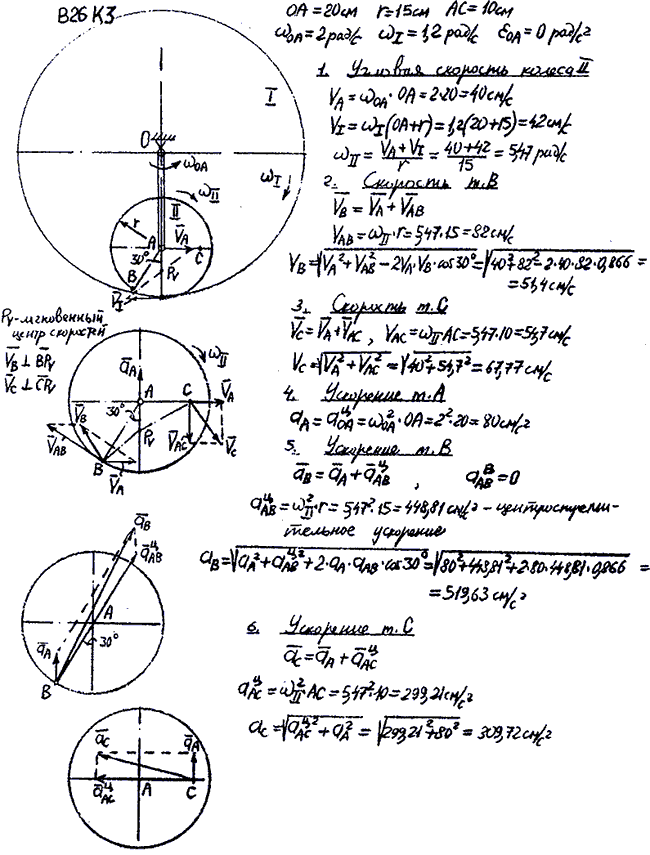 В26 К3
OA = 20см r = 15см AC = 10см
ω_OA = 2 рад/с ω_I = 1,2 рад/с ε_OA = 0 рад/с²
1. Угловая скорость колеса II
V_A = ω_OA · OA = 2·20 = 40 см/с
V_I = ω_I (OA+r) = 1,2(20+15) = 42 см/с
ω_II = (V_A + V_I)/r = (40+42)/15 = 5,47 рад/с
2. Скорость т.В
V̄_B = V̄_A + V̄_AB
V_AB = ω_II · r = 5,47·15 = 82 см/с
V_B = √(V_A² + V_AB² − 2V_A·V_B·cos30°) = √(40²+82²−2·40·82·0,866) =
= 51,4 см/с
3. Скорость т.С
V̄_C = V̄_A + V̄_AC , V_AC = ω_II AC = 5,47·10 = 54,7 см/с
V_C = √(V_A² + V_AC²) = √(40²+54,7²) = 67,77 см/с
4. Ускорение т.А
a_A = a_OA^ц = ω_OA² · OA = 2²·20 = 80 см/с²
5. Ускорение т.В
ā_B = ā_A + ā_AB^ц , a_AB^В = 0
a_AB^ц = ω_II² · r = 5,47²·15 = 448,81 см/с² – центростреми-
тельное ускорение
a_B = √(a_A² + a_AC^ц² + 2·a_A·a_AB·cos30°) = √(80²+448,81²+2·80·448,81·0,866) =
= 519,63 см/с²
6. Ускорение т.С
ā_C = ā_A + ā_AC^ц
a_AC^ц = ω_II² · AC = 5,47²·10 = 299,21 см/с²
a_C = √(a_AC^ц² + a_A²) = √(299,21²+80²) = 309,72 см/с²
I
O
ω_OA
ω_I
ω_II
II
r
A
V̄_A
30°
C
B
P_V
V̄_I
P_V – мгновенный
центр скоростей
V̄_B ⊥ BP_V
V̄_C ⊥ CP_V
ω_II
ā_A
A
C
V̄_A
V̄_B
30°
P_V
V̄_AC
V̄_C
V̄_AB
B
V̄_A
ā_B
ā_AB^ц
A
ā_A
30°
B
ā_C
ā_A
ā_AC^ц
A
C